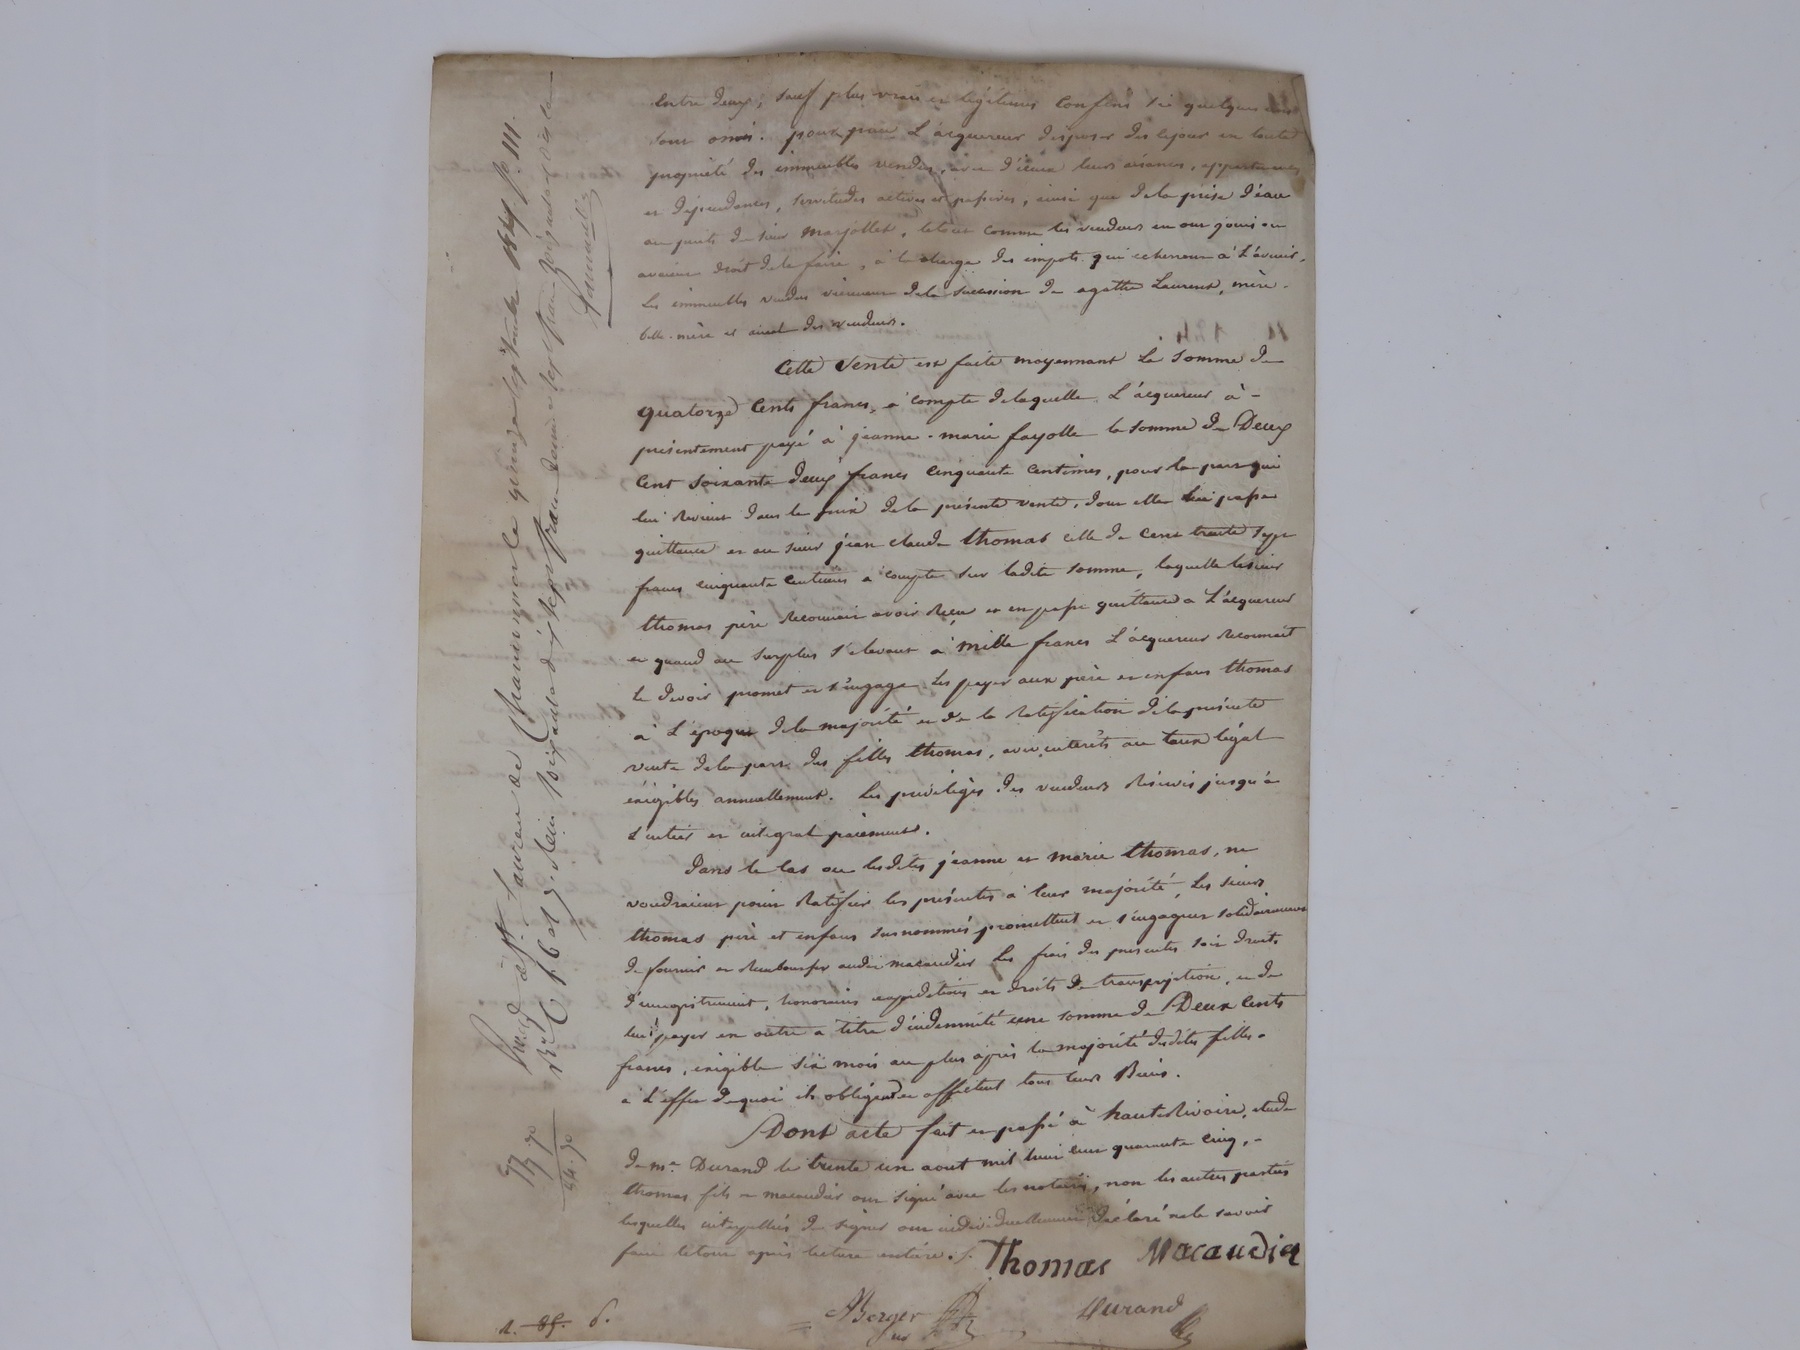 entre deux, sauf plus vrais et légitimes confins si quelques uns
sont omis. pour par L'acquereur disposer dès cejour en toute
propriété des immeubles vendus, avec d'iceux leurs aisances, appartenances
et dépendances, servitudes actives et passives, ainsi que dela prise d'eau
au puits du sieur marjollet, letout comme les vendeurs en ont joui ou
avaient droit dele faire, à la charge des impots qui echerront à L'avenir.
Les immeubles vendus viennent dela succession de agathe Laurent, mère-
belle-mère et aieul des vendeurs.
Cette Vente est faite moyennant La somme de
quatorze Cents francs, à compte delaquelle L'acquereur à-
présentement payé à jeanne-marie fayolle la somme de Deux
Cent soixante deux francs Cinquante centimes, pour la part qui
lui Revient dans le prix dela présente vente, dont elle lui passe
quittance et au sieur jean claude thomas celle de Cent trente sept
francs cinquante centimes a compte sur ladite somme, laquelle lesieur
thomas père Reconnait avoir Reçu et en passe quittance a L'acquereur
et quand au surplus s'elevant à mille francs L'acquereur Reconnait
le devoir promet et s'engage les payer aux père et enfans thomas
a L'époque dela majorité et de la Ratification dela présente
vente dela part des filles thomas, avec intérêts au taux légal
exigibles annuellement. Les priviléges des vendeurs Réservés jusqu'a
L'entier et intégral paiement.
Dans le cas ou lesdites jeanne et marie thomas, ne
voudraient point Ratifier les présentes a leur majorité, Les sieurs
thomas père et enfans susnommés promettent et s'engagent solidairement
de fournir et Rembourser audit macaudier Les frais des presentes soit droits
d'enregistrement, honoraires expeditions et droits de transcription, et de
lui payer en outre a titre d'indemnité une somme de Deux Cents
francs, exigible six mois au plus après la majorité desdites filles.
a L'effet dequoi ils obligent et affectent tous leurs Biens.
Dont acte fait et passé à hauteRivoire, etude
de me. Durand le trente un aout mil huit cent quarante cinq,-
thomas fils et macaudier ont signé avec les notaires, non les autres parties
lesquelles interpellées de signer ont individuellement déclaré nele savoir
faire letout après lecture entière./.
Thomas Macaudier
ABerger Durand
Enreg. à St. Laurent de Chamousset le quinze septembre 1845 fo. 111.
Ro. C. 6 et 7. Reçu